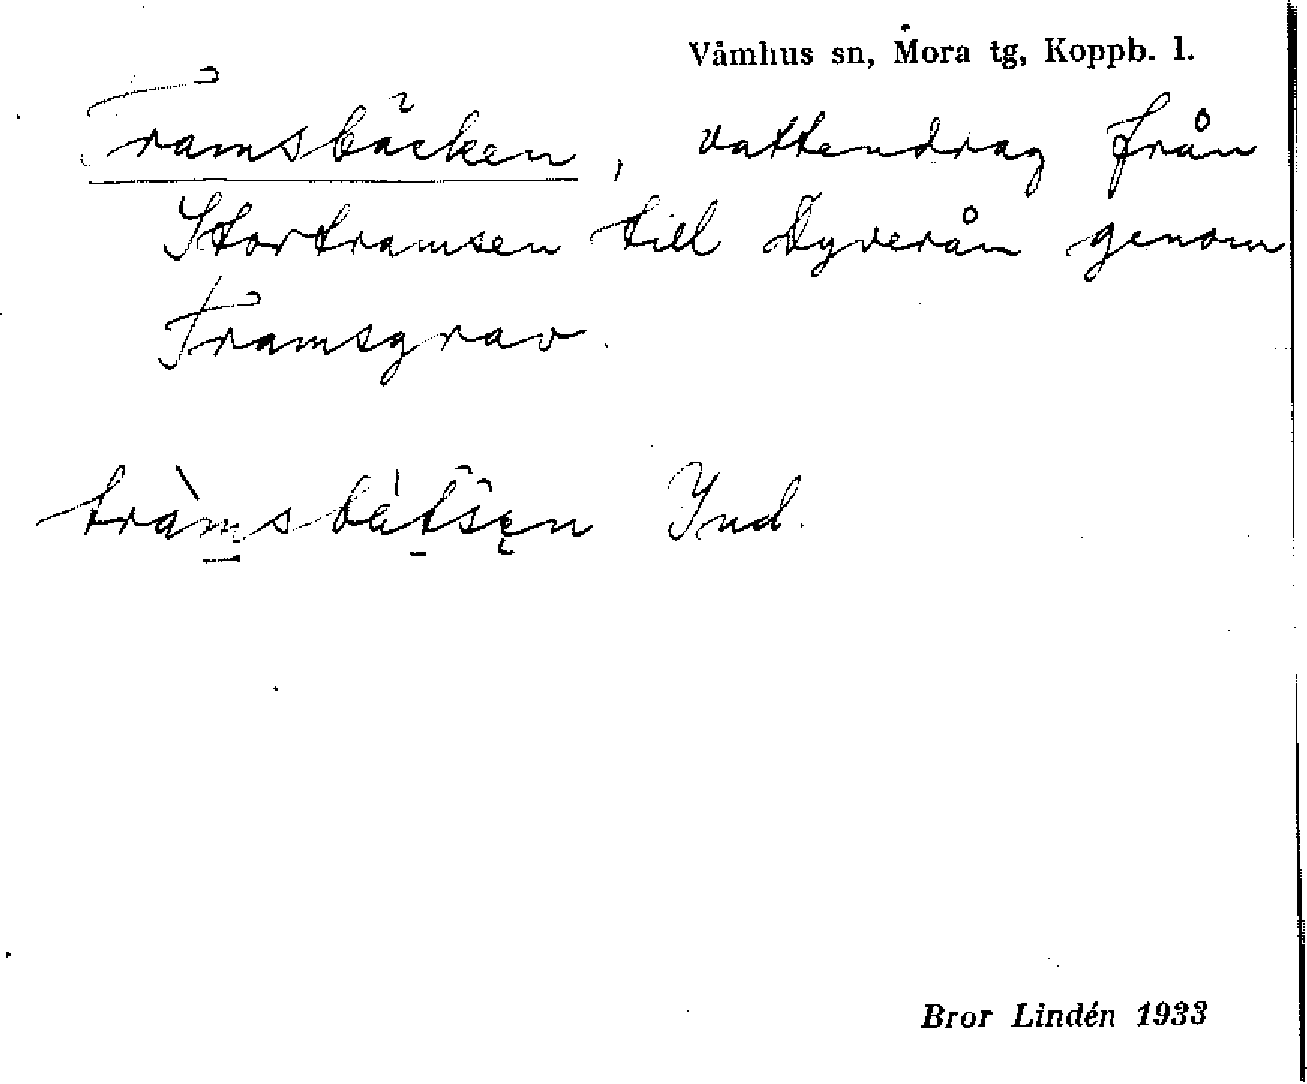 Våmhus sn, Mora tg, Koppb. l.
Tramsbäcken, vattendrag från
Stortramsen till Dyverån genom
Tramsgrav.
Bror Lindén 1933